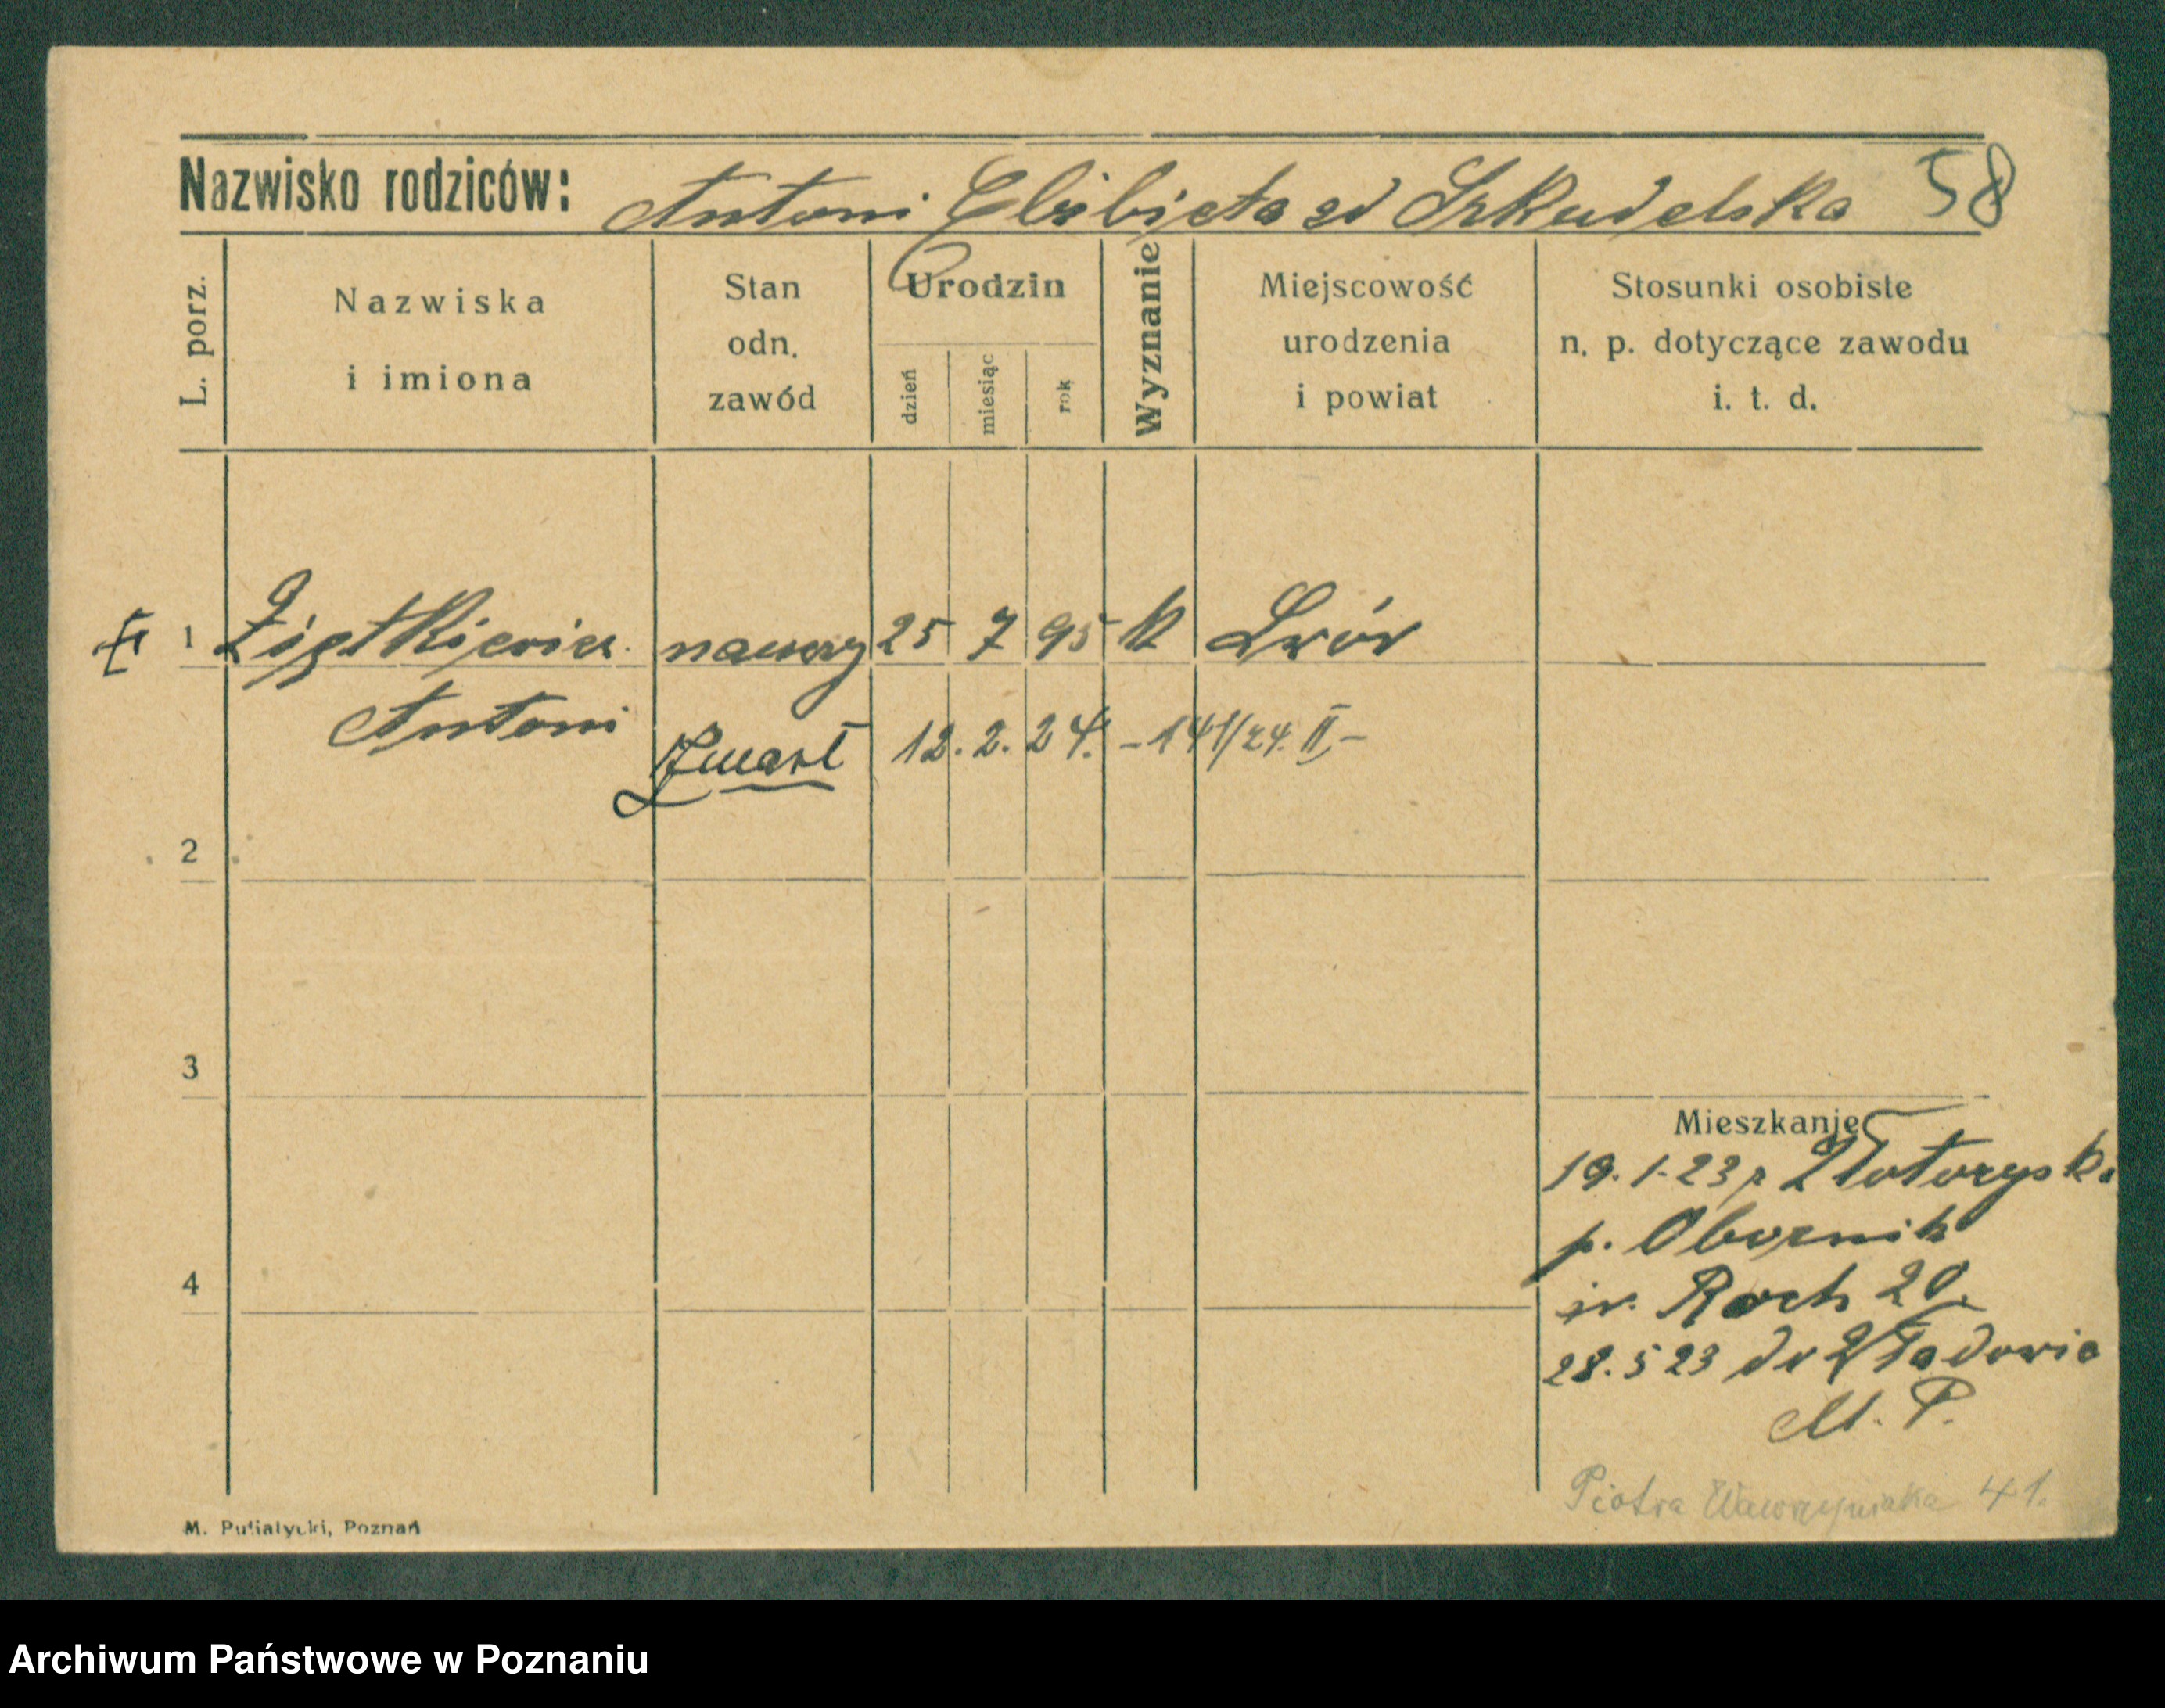 Nazwisko rodziców: Antoni Elżbieta zd Szkudelska 58
L. porz.
Nazwiska i imiona
Stan odn. zawód
Urodzin
dzień miesiąc rok
Wyznanie
Miejscowość urodzenia i powiat
Stosunki osobiste n. p. dotyczące zawodu i. t. d.
1 Ziętkiewicz naucz 25 7 95 k Lwów
Antoni
Zmarł 12. 2. 24. - 141/24. II, -
2
3
4
Mieszkanie
19. 1. 23 z
p. Obornik
św. Roch 20,
28. 5 23 do
M. P.
Piotra Wawrzyniaka 41.
M. Putiatycki, Poznań
Archiwum Państwowe w Poznaniu